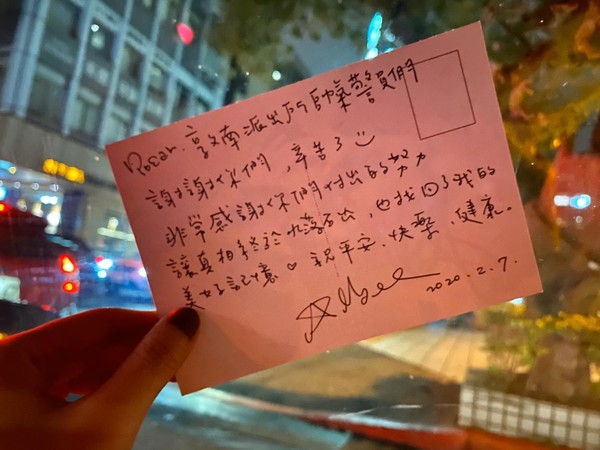 Dear. 敦南派出所帥氣警員們
謝謝你們，辛苦了
非常感謝你們付出的努力
讓真相終於水落石出，也找回了我的
美好記憶♡ 祝平安、快樂、健康。
2020.2.7.